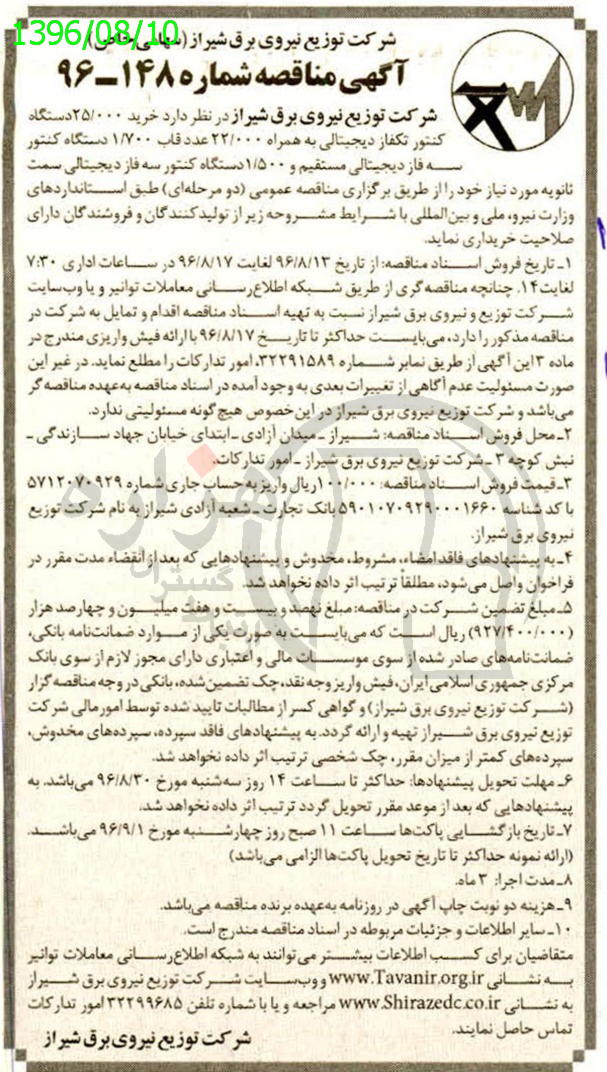 1396/08/10
شرکت توزیع نیروی برق شیراز (سهامی خاص)
آگهی مناقصه شماره ۱۴۸-۹۶
شرکت توزیع نیروی برق شیراز در نظر دارد خرید ۲۵/۰۰۰دستگاه
کنتور تکفاز دیجیتالی به همراه ۲۲/۰۰۰ عدد قاب ۱/۷۰۰ دستگاه کنتور
سه فاز دیجیتالی مستقیم و ۱/۵۰۰دستگاه کنتور سه فاز دیجیتالی سمت
ثانویه مورد نیاز خود را از طریق برگزاری مناقصه عمومی (دو مرحله‌ای) طبق استانداردهای
وزارت نیرو، ملی و بین‌المللی با شرایط مشروحه زیر از تولیدکنندگان و فروشندگان دارای
صلاحیت خریداری نماید.
۱ـ تاریخ فروش اسناد مناقصه: از تاریخ ۹۶/۸/۱۳ لغایت ۹۶/۸/۱۷ در ساعات اداری ۷:۳۰
لغایت۱۴. چنانچه مناقصه‌گری از طریق شبکه اطلاع‌رسانی معاملات توانیر و یا وب‌سایت
شرکت توزیع و نیروی برق شیراز نسبت به تهیه اسناد مناقصه اقدام و تمایل به شرکت در
مناقصه مذکور را دارد، می‌بایست حداکثر تا تاریخ ۹۶/۸/۱۷ با ارائه فیش واریزی مندرج در
ماده ۳ این آگهی از طریق نمابر شماره ۳۲۲۹۱۵۸۹، امور تدارکات را مطلع نماید. در غیر این
صورت مسئولیت عدم آگاهی از تغییرات بعدی به وجود آمده در اسناد مناقصه به‌عهده مناقصه‌گر
می‌باشد و شرکت توزیع نیروی برق شیراز در این‌خصوص هیچ گونه مسئولیتی ندارد.
۲ـ محل فروش اسناد مناقصه: شیراز ـ میدان آزادی ـ ابتدای خیابان جهاد سازندگی ـ
نبش کوچه ۳ ـ شرکت توزیع نیروی برق شیراز ـ امور تدارکات.
۳ـ قیمت فروش اسناد مناقصه: ۱۰۰/۰۰۰ریال واریز به حساب جاری شماره ۵۷۱۲۰۷۰۹۲۹
با کد شناسه ۵۹۰۱۰۷۰۹۲۹۰۰۰۱۶۶۰ بانک تجارت ـ شعبه آزادی شیراز به نام شرکت توزیع
نیروی برق شیراز.
۴ـ به پیشنهادهای فاقد امضاء، مشروط، مخدوش و پیشنهادهایی که بعد از انقضاء مدت مقرر در
فراخوان واصل می‌شود، مطلقاً ترتیب اثر داده نخواهد شد.
۵ـ مبلغ تضمین شرکت در مناقصه: مبلغ نهصد و بیست و هفت میلیون و چهارصد هزار
(۹۲۷/۴۰۰/۰۰۰) ریال است که می‌بایست به صورت یکی از موارد ضمانت‌نامه بانکی،
ضمانت‌نامه‌های صادر شده از سوی موسسات مالی و اعتباری دارای مجوز لازم از سوی بانک
مرکزی جمهوری اسلامی ایران، فیش واریز وجه نقد، چک تضمین شده، بانکی در وجه مناقصه گزار
(شرکت توزیع نیروی برق شیراز) و گواهی کسر از مطالبات تایید شده توسط امور مالی شرکت
توزیع نیروی برق شیراز تهیه و ارائه گردد. به پیشنهادهای فاقد سپرده، سپرده‌های مخدوش،
سپرده‌های کمتر از میزان مقرر، چک شخصی ترتیب اثر داده نخواهد شد.
۶ـ مهلت تحویل پیشنهادها: حداکثر تا ساعت ۱۴ روز سه‌شنبه مورخ ۹۶/۸/۳۰ می‌باشد. به
پیشنهادهایی که بعد از موعد مقرر تحویل گردد ترتیب اثر داده نخواهد شد.
۷ـ تاریخ بازگشایی پاکت‌ها ساعت ۱۱ صبح روز چهارشنبه مورخ ۹۶/۹/۱ می‌باشد.
(ارائه نمونه حداکثر تا تاریخ تحویل پاکت‌ها الزامی می‌باشد)
۸ـ مدت اجرا: ۳ ماه.
۹ـ هزینه دو نوبت چاپ آگهی در روزنامه به‌عهده برنده مناقصه می‌باشد.
۱۰ـ سایر اطلاعات و جزئیات مربوطه در اسناد مناقصه مندرج است.
متقاضیان برای کسب اطلاعات بیشتر می‌توانند به شبکه اطلاع‌رسانی معاملات توانیر
به نشانی www.Tavanir.org.ir و وب‌سایت شرکت توزیع نیروی برق شیراز
به نشانی www.Shirazedc.co.ir مراجعه و یا با شماره تلفن ۳۲۲۹۹۶۸۵ امور تدارکات
تماس حاصل نمایند.
شرکت توزیع نیروی برق شیراز